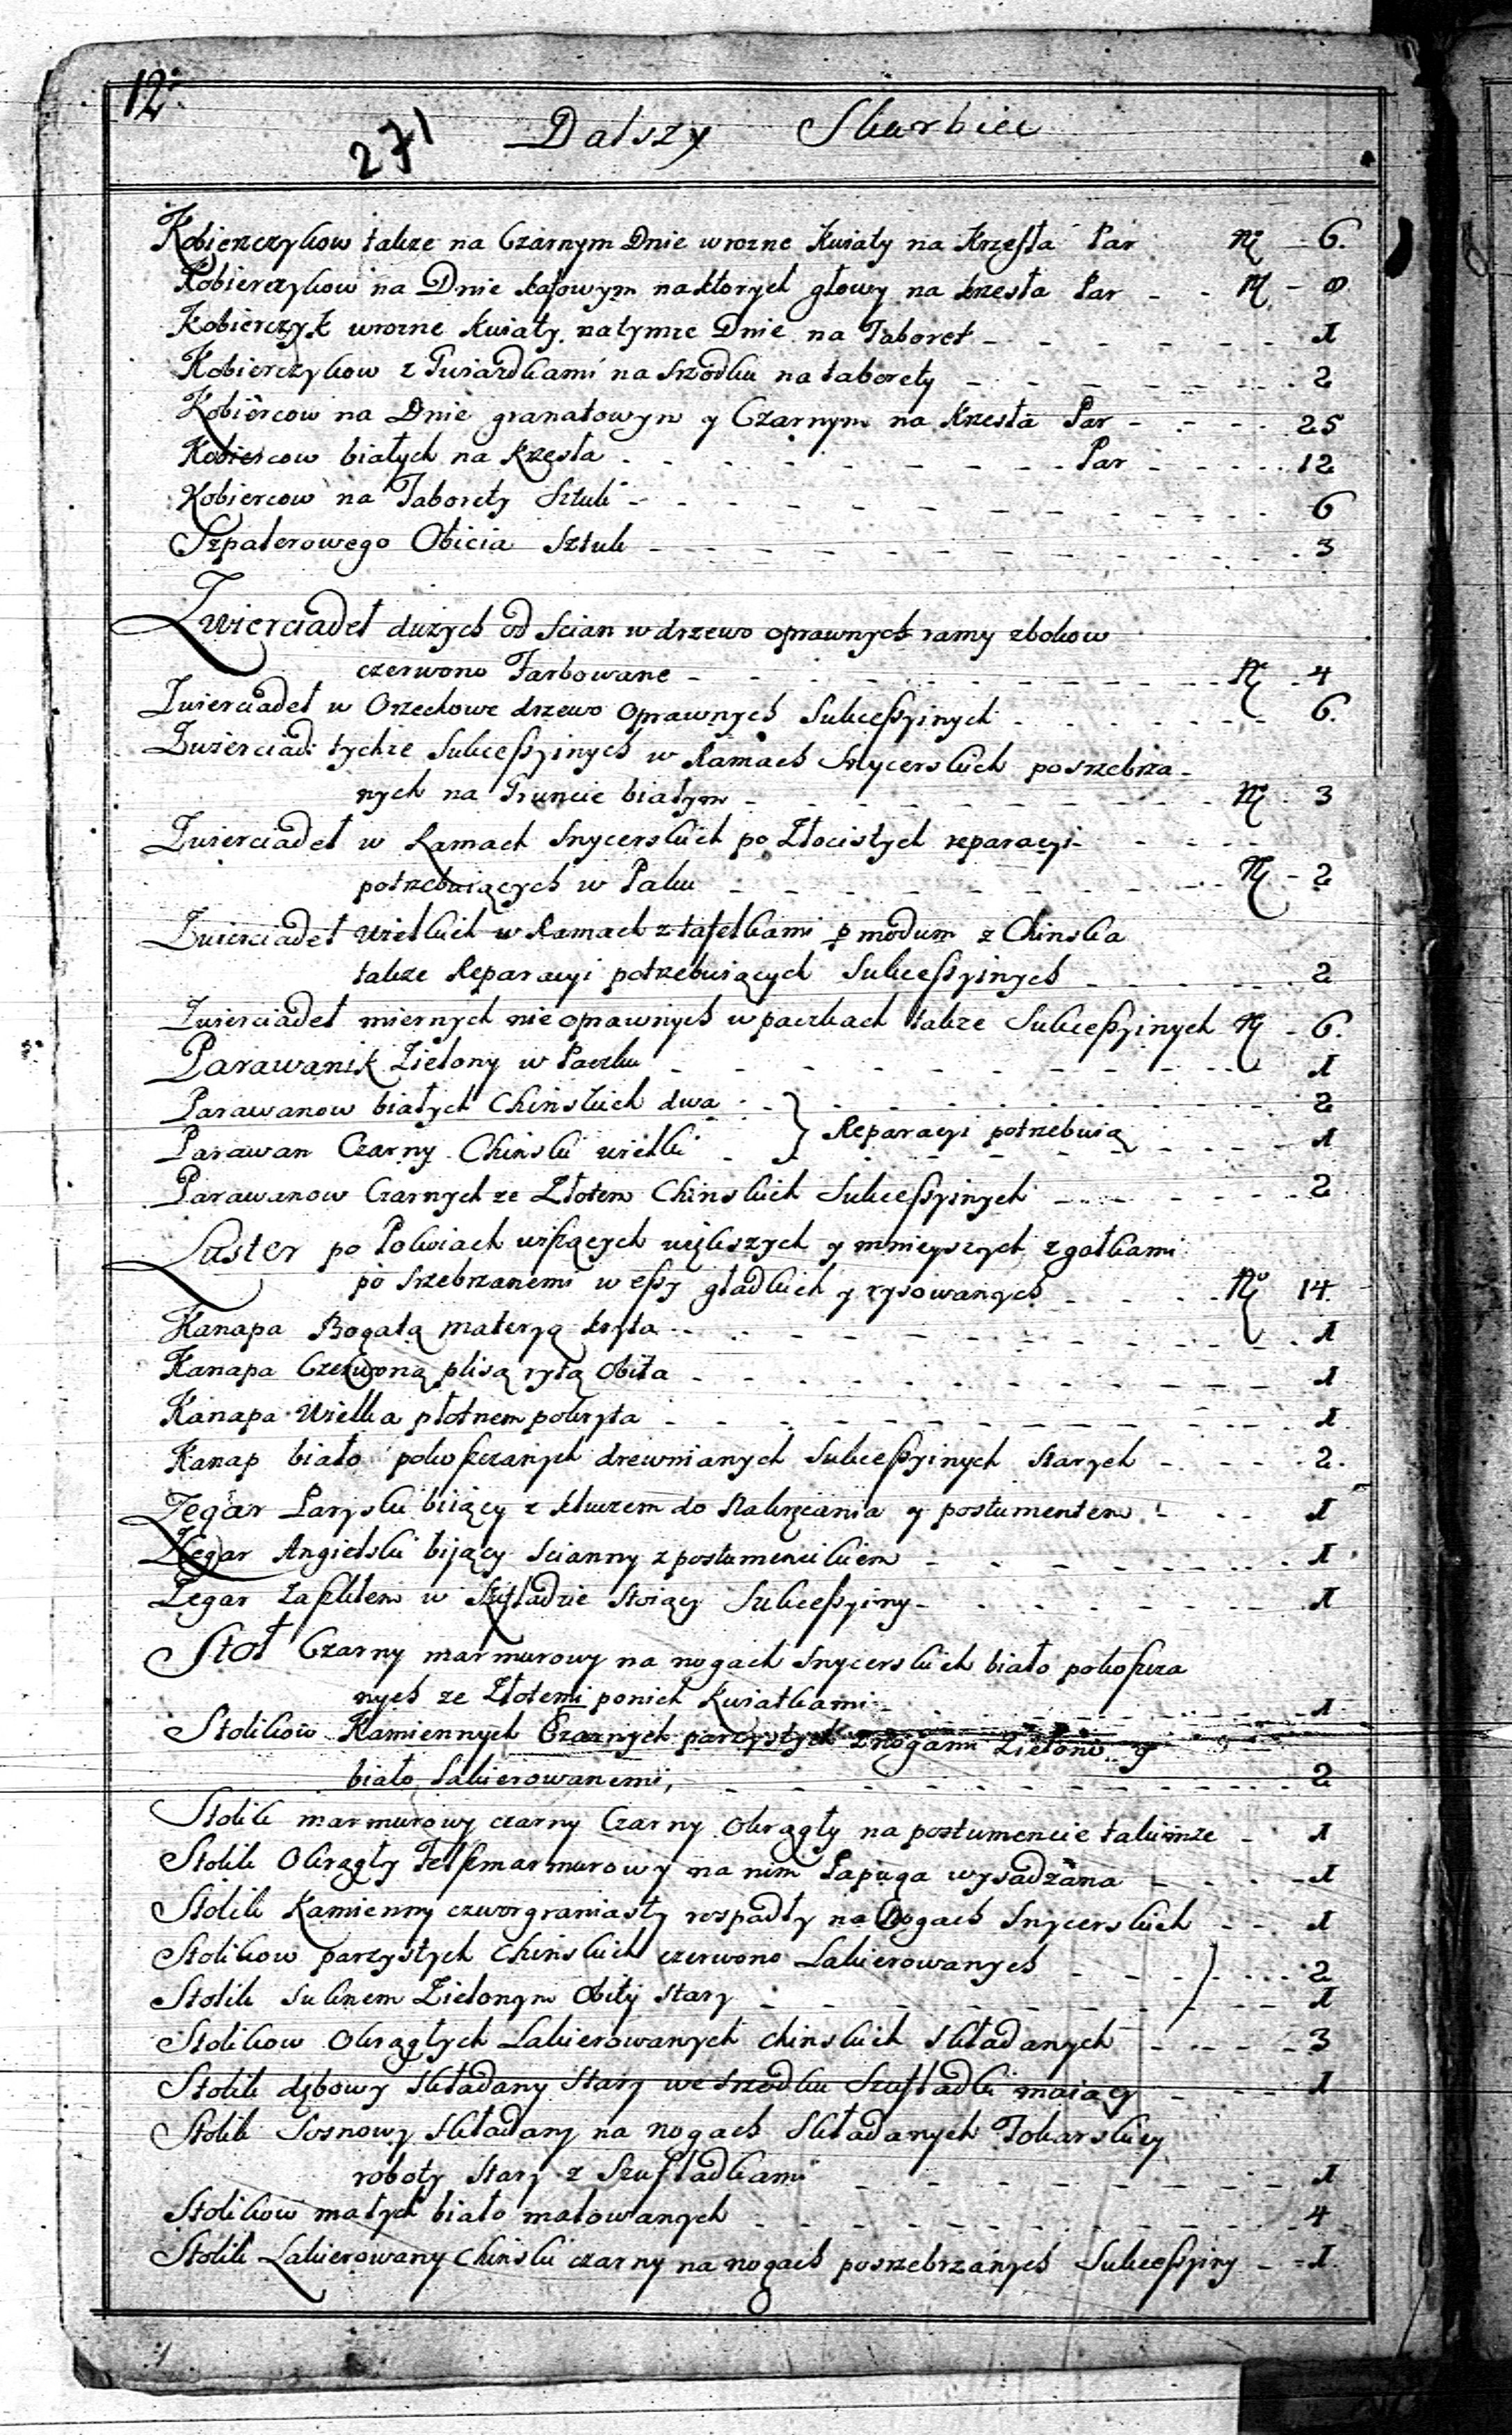 12.
271
Dalszy Skarbiec
Kobierczykow także na Czarnym Dnie w rozne Kwiaty na Krzesła Par No 6.
Kobierczykow na Dnie na ktorych głowy na krzesła Par - - No -
Kobierczyk w rozne kwiaty na tymze Dnie na Taboret - - 1
Kobierczykow z Gwiazdkami na srzodku na taborety - - 2
Kobiercow na Dnie granatowym y Czarnym na krzesła Par - - 25
Kobiercow białych na krzesła - - Par - - 12
Kobiercow na Taborety Sztuk - - 6
Szpalerowego Obicia Sztuk - - 3
Zwierciadeł dużych od Scian w drzewo oprawnych ramy z bokow
czerwono Farbowane - - No - 4
Zwierciadeł w Orzechowe drzewo Oprawnych Sukcessyinych - - 6.
Zwierciadł tychze Sukcessyinych w Ramach Snycerskich posrzebrza-
nych na Gruncie białym - - No - 3
Zwierciadeł w Ramach Snycerskich po Złocistych reparacyi
potrzebuiących w Paku - - No - 2
Zwierciadeł wielkich w Ramach z tafelkami p modum z Chinska
także Reparacyi potrzebuiących Sukcessyinych - - 2
Zwierciadeł miernych nie oprawnych w paczkach także Sukcessyinych No - 6.
Parawanik Zielony w Paczku - - 1
Parawanow białych Chinskich dwa - - 2
Parawan Czarny Chinski wielki } Reparacyi potrzebuią - - 1
Parawanow Czarnych ze Złotem Chinskich Sukcessyinych - - 2
Luster po Pokoiach wiszących większych y mnieyszych z gałkami
po srzebrzanemi w essy gładkich y rysowanych - - No 14.
Kanapa Bogatą materyą kryta - - 1
Kanapa Czerwoną plisą rytą Obita - - 1
Kanapa Wielka płotnem pokryta - - 1
Kanap biało pokoszczanych drewnianych Sukcessyinych starych - - 2.
Zegar Paryski biiący z kluczem do Nakręcania y postumentem - - 1
Zegar Angielski bijący Scianny z postumencikiem - - 1
Zegar za szkłem w Szufladzie stoiący Sukcessyiny - - 1
Stoł Czarny marmurowy na nogach Snycerskich biało pokoszcza
nych ze Złotemi po nich Kwiatkami - - 1
Stolikow Kamiennych Czarnych parzystych z nogami Zielono y
biało Lakierowanemi, - - 2
Stolik marmurowy czarny Czarny Okrągły na postumencie takimze - 1
Stolik Okrągły Felszmarmurowy na nim Papuga wysadzana - - 1
Stolik Kamienny czworgraniasty rospadły na Nogach Snycerskich - - 1
Stolikow parzystych Chinskich czerwono Lakierowanych - - 2
Stolik Suknem Zielonym Obity stary - - 1
Stolikow Okrągłych Lakierowanych chinskich składanych - - 3
Stolik dębowy składany stary we srzodku Szufladki maiący - - 1
Stolik Sosnowy składany na nogach składanych Tokarskiey
roboty stary z Szufladkami - - 1
Stolikow małych biało malowanych - - 4
Stolik Lakierowany Chinski czarny na nogach posrzebrzanych Sukcessyiny - - 1